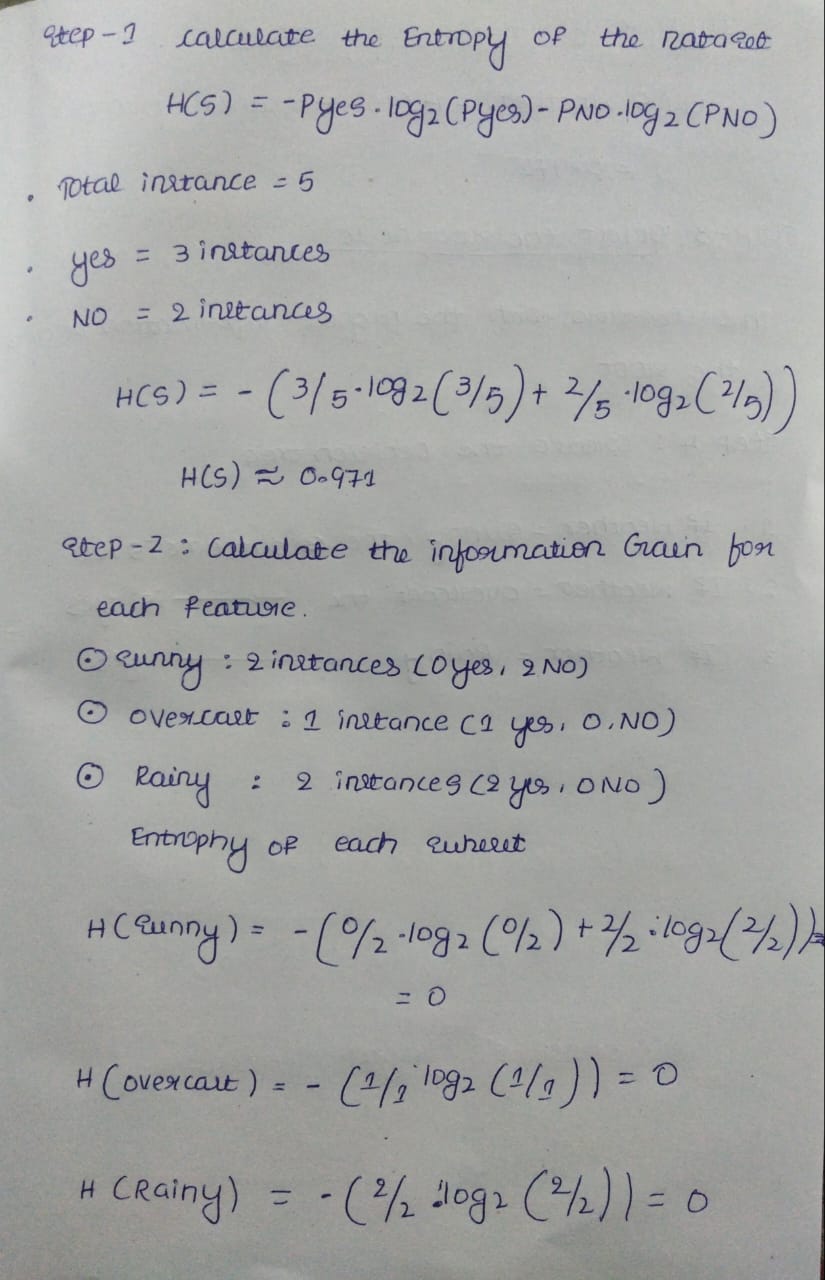 Step-1 calculate the Entropy of the Dataset
H(S) = -Pyes.log2(Pyes)-PNO.log2(PNO)
. Total instance = 5
. yes = 3 instances
. NO = 2 instances
H(S) = - (3/5.log2(3/5)+ 2/5.log2(2/5))
H(S) ≈ 0.971
Step-2 : Calculate the information Gain for
each Feature.
⊙ Sunny : 2 instances (0 yes, 2 NO)
⊙ overcast : 1 instance (1 yes, 0, NO)
⊙ Rainy : 2 instances (2 yes, 0 NO)
Entrophy of each subset
H(Sunny) = -(0/2.log2(0/2)+2/2.log2(2/2))=
= 0
H(overcast) = - (1/1.log2(1/1)) = 0
H(Rainy) = -(2/2.log2(2/2)) = 0